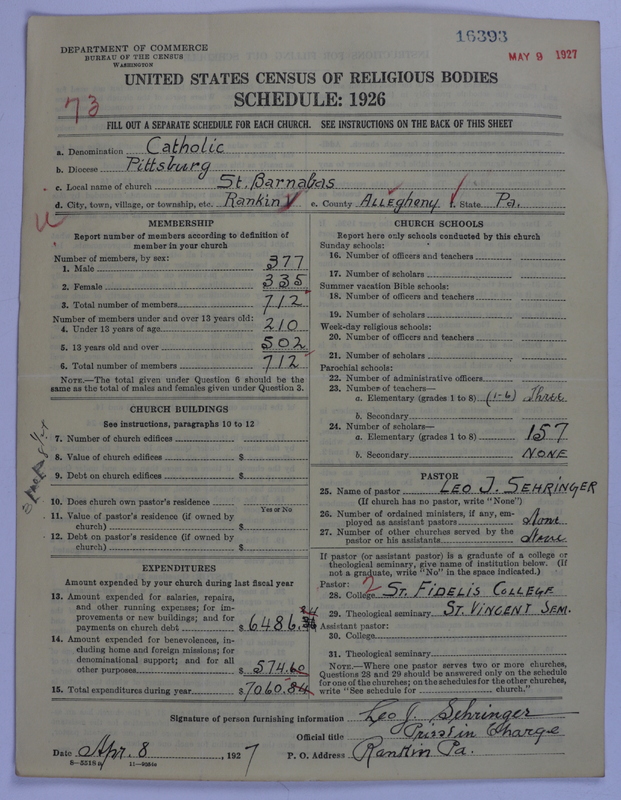 16393
MAY 9 1927
DEPARTMENT OF COMMERCE
BUREAU OF THE CENSUS
WASHINGTON
UNITED STATES CENSUS OF RELIGIOUS BODIES
SCHEDULE: 1926
73
FILL OUT A SEPARATE SCHEDULE FOR EACH CHURCH. SEE INSTRUCTIONS ON THE BACK OF THIS SHEET
a. Denomination Catholic
b. Diocese Pittsburg
c. Local name of church St. Barnabas
d. City, town, village, or township, etc. Rankin e. County Allegheny f. State Pa.
MEMBERSHIP
Report number of members according to definition of member in your church
Number of members, by sex:
1. Male 377
2. Female 335
3. Total number of members 712
Number of members under and over 13 years old:
4. Under 13 years of age 210
5. 13 years old and over 502
6. Total number of members 712
NOTE.—The total given under Question 6 should be the
same as the total of males and females given under Question 3.
CHURCH BUILDINGS
See instructions, paragraphs 10 to 12
7. Number of church edifices
8. Value of church edifices $
9. Debt on church edifices $
10. Does church own pastor's residence
Yes or No
11. Value of pastor's residence (if owned by
church) $
12. Debt on pastor's residence (if owned by
church) $
EXPENDITURES
Amount expended by your church during last fiscal year
13. Amount expended for salaries, repairs,
and other running expenses; for im-
provements or new buildings; and for
payments on church debt $ 6486.24
14. Amount expended for benevolences, in-
cluding home and foreign missions; for
denominational support; and for all
other purposes $ 574.60
15. Total expenditures during year $ 7060.84
CHURCH SCHOOLS
Report here only schools conducted by this church
Sunday schools:
16. Number of officers and teachers
17. Number of scholars
Summer vacation Bible schools:
18. Number of officers and teachers
19. Number of scholars
Week-day religious schools:
20. Number of officers and teachers
21. Number of scholars
Parochial schools:
22. Number of administrative officers
23. Number of teachers—
a. Elementary (grades 1 to 8) (1-6) Three
b. Secondary
24. Number of scholars—
a. Elementary (grades 1 to 8) 157
b. Secondary NONE
PASTOR
25. Name of pastor LEO J. SEHRINGER
(If church has no pastor, write "None")
26. Number of ordained ministers, if any, em-
ployed as assistant pastors None
27. Number of other churches served by the
pastor or his assistants None
If pastor (or assistant pastor) is a graduate of a college or
theological seminary, give name of institution below. (If
not a graduate, write "No" in the space indicated.)
Pastor: 2
28. College ST. FIDELIS COLLEGE
29. Theological seminary ST. VINCENT SEM.
Assistant pastor:
30. College
31. Theological seminary
NOTE.—Where one pastor serves two or more churches,
Questions 28 and 29 should be answered only on the schedule
for one of the churches; on the schedules for the other churches,
write "See schedule for church."
Signature of person furnishing information Leo J. Sehringer
Official title Priest in Charge
Date Apr. 8, 1927 P. O. Address Rankin Pa.
8-5518a 11-9084a